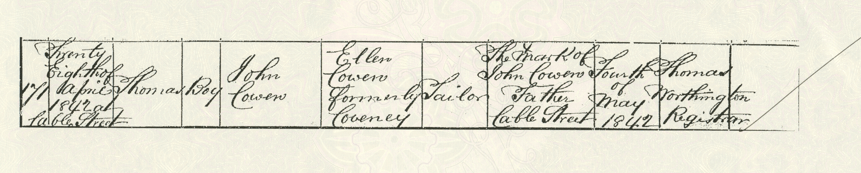 171
Twenty
Eighth of
April
1842 at
Cable Street
Thomas
Boy
John
Cowen
Ellen
Cowen
formerly
Coveney
Tailor
The mark of
John Cowen
Father
Cable Street
Fourth
of
May
1842
Thomas
Worthington
Registrar